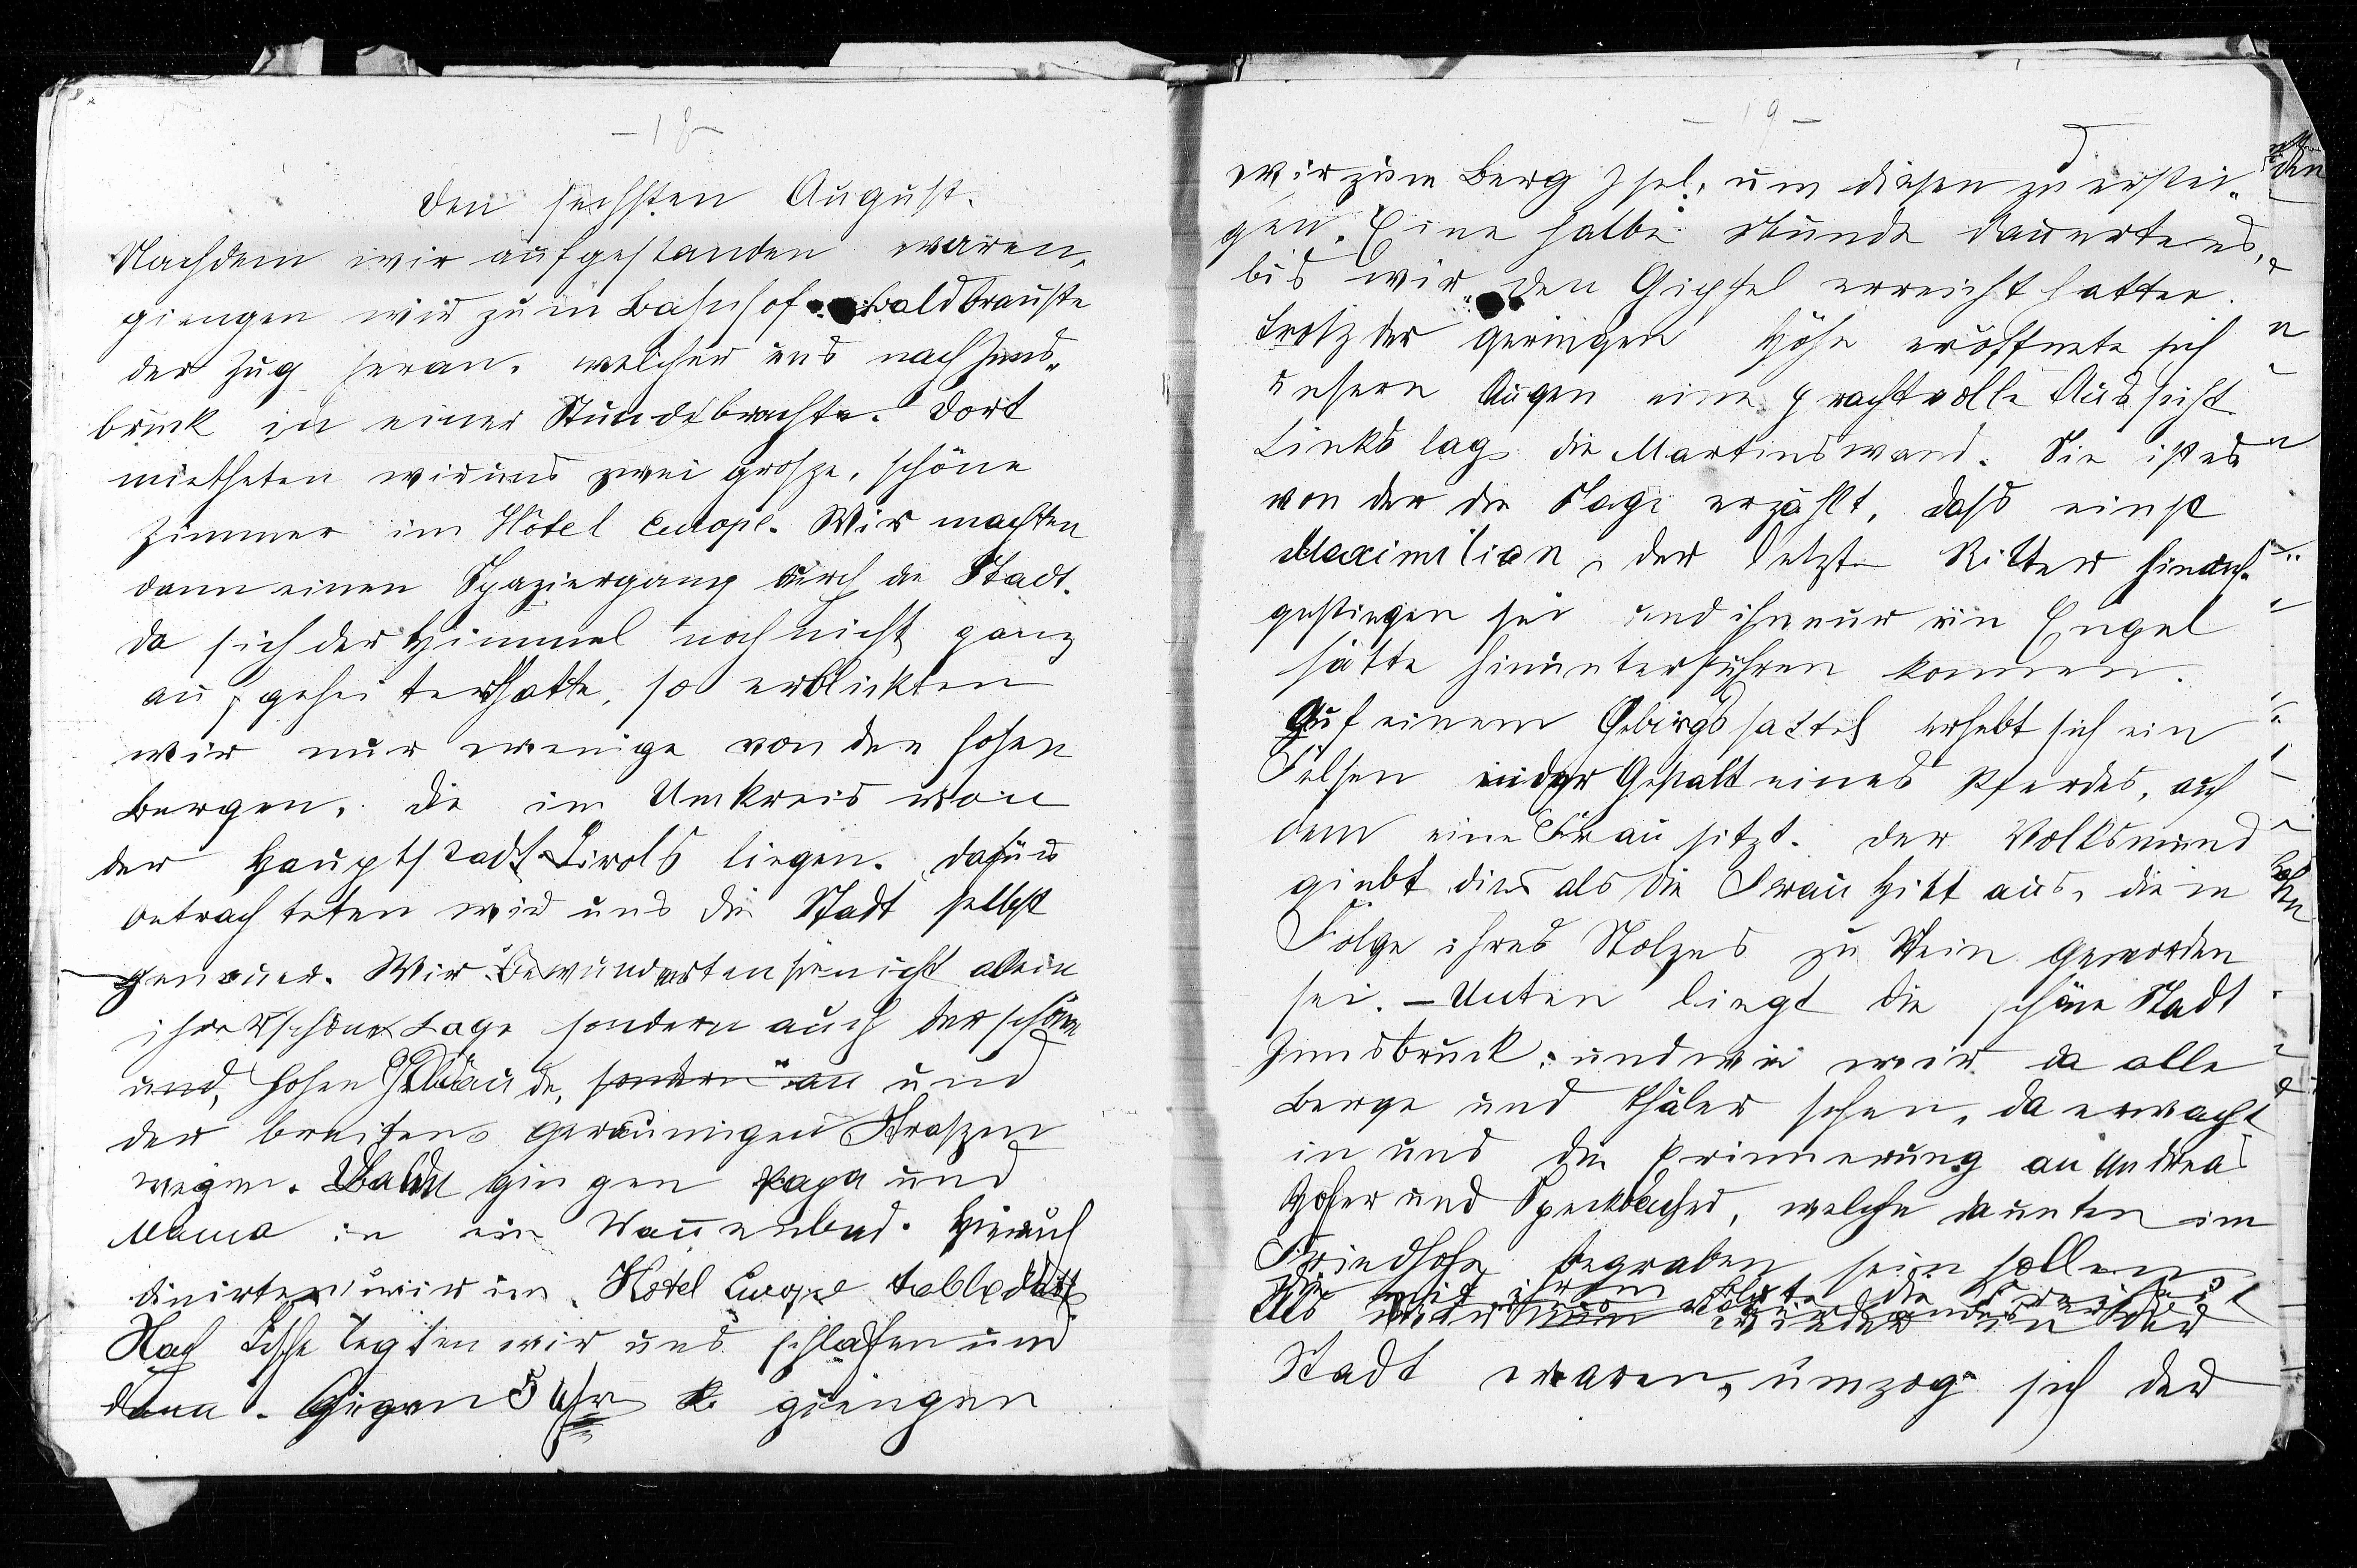 - 18 -
Den sechsten August.
Nachdem wir aufgestanden waren,
giengen wir zum Bahnhof. Bald brauste
der Zug heran, welcher uns nach Inns„
bruck in einer Stunde brachte. Dort
mietheten wir uns zwei grosze, schöne
Zimmer im Hôtel Europe. Wir machten
dann einen Spaziergang durch die Stadt.
Da sich der Himmel noch nicht ganz
aufgeheitert hatte, so erblickten
wir nur wenige von den hohen
Bergen, die im Umkreis von
der Hauptstadt Tirols liegen. Dafür
betrachteten wir uns die Stadt selbst
genauer. Wir bewunderten sie nicht allein
ihrer schönen Lage sondern auch der schönen
und, hohen Gebäude, sondern au und
der breiten geräumigen Straszen
wegen. Bald gingen Papa und
Mama in ein Wannenbad. Hierauf
dinirten wir im Hôtel Europe table d'hôte
Nach Tische legten wir uns schlafen und
dann. Gegen 5 Uhr giengen
- 19 -
wir zum Berg Isel, um diesen zu erstei„
gen. Eine halbe Stunde dauerte es,
bis wir den Gipfel erreicht hatten.
Trotz der geringen Höhe eröffnete sich
unsern Augen eine prachtvolle Aussicht
Links lag die Martinswand. Sie ist es
von der die Sage erzählt, dass einst
Maximilian, der letzte Ritter hinauf
gestiegen sei und ihn nur ein Engel
hätte hinunterführen können.
Auf einem Gebirgssattel erhebt sich ein
Felsen in der Gestalt eines Pferdes, auf
dem eine Frau sitzt. Der Volksmund
giebt dies als die Frau Hitt aus, die in
Folge ihres Stolzes zu Stein geworden
sei. – Unten liegt die schöne Stadt
Innsbruck, und wie wir da alle
Berge und Thäler sehen, da erwacht
in uns die Erinnerung an Andreas
Hofer und Speckbacher, welche da unten im
Friedhofe begraben sein sollen
die mit ihrem Blute die
Als wir nun wieder in der
Stadt waren, umzog sich der